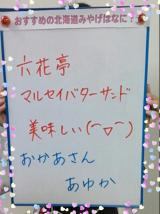 おすすめの北海道みやげはなに!
六花亭
マルセイバターサンド
美味しい(⌒▽⌒)
おかあさん
あゆか